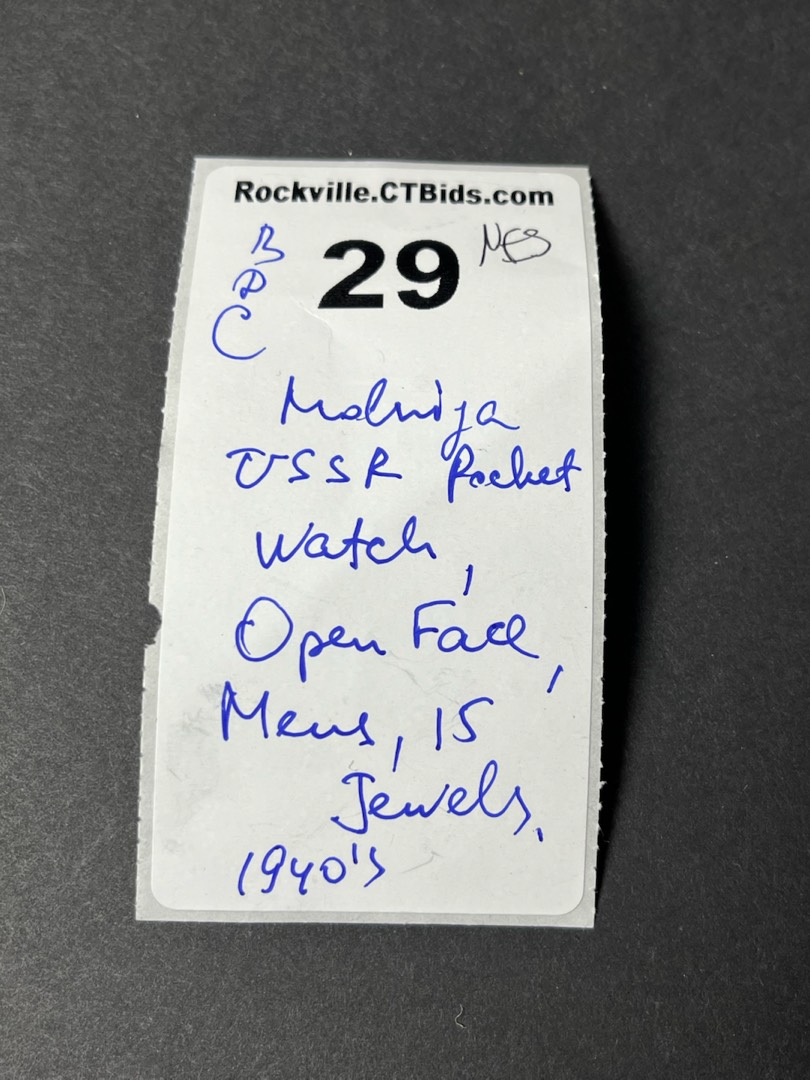 Rockville.CTBids.com
B
P
C
29
Molnija
USSR Pocket
Watch,
Open Face,
Mens, 15
Jewels,
1940's